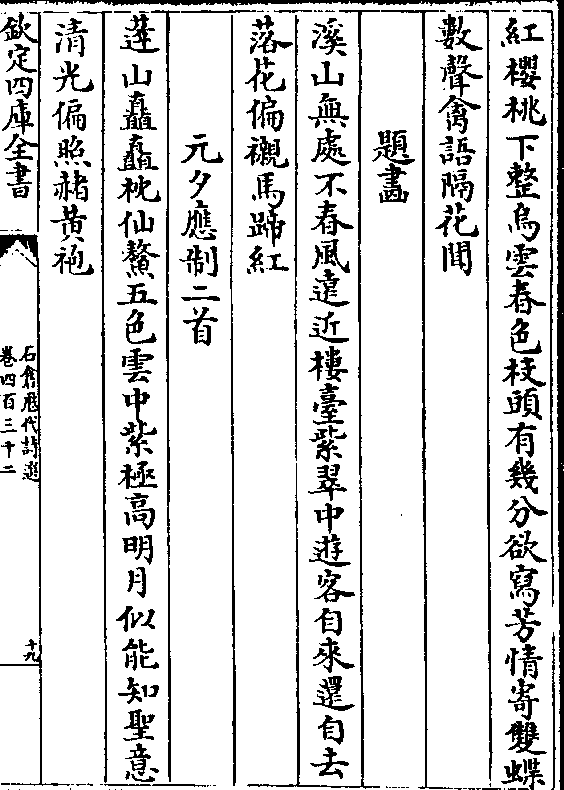 紅櫻桃下整烏雲春色枝頭有幾分欲寫芳情寄雙蝶
數聲禽語隔花聞
題畫
溪山無處不春風遠近樓臺紫翠中遊客自來還自去
落花偏襯馬蹄紅
元夕應制二首
蓬山矗矗枕仙鰲五色雲中紫極高明月似能知聖意
清光偏照赭黃袍
欽定四庫全書
石倉歷代詩選
卷四百三十二
十九